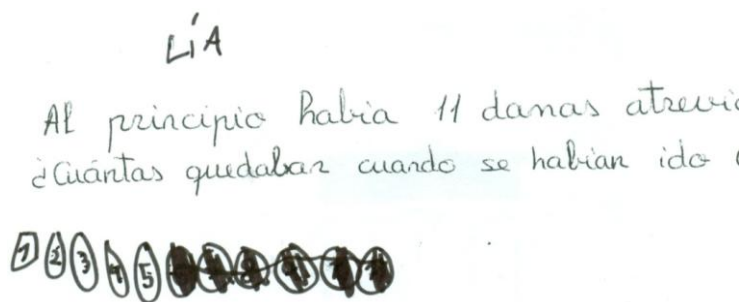 LíA
Al principio habia 11 damas
¿Cuántas quedaban cuando se habian ido
1 2 3 4 5 8